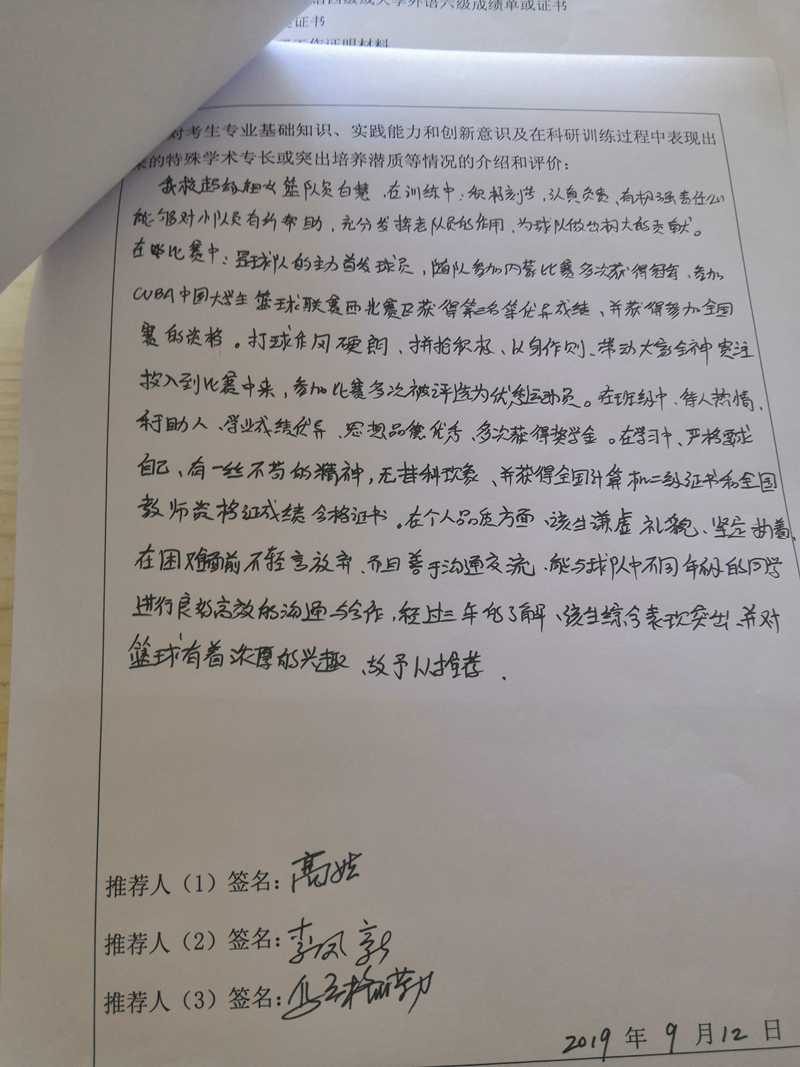 四级或大学外语六级成绩单或证书
证书
工作证明材料
对考生专业基础知识、实践能力和创新意识及在科研训练过程中表现出
的特殊学术专长或突出培养潜质等情况的介绍和评价:
我校超级组女篮队员白慧,在训练中:积极刻苦,认真负责,有极强责任心
能够对小队员有所帮助,充分发挥老队员的作用,为球队做出极大的贡献。
在比赛中:是球队的主力首发球员,随队参加内蒙比赛多次获得冠军、参加
CUBA中国大学生篮球联赛西北赛区获得第名等优异成绩、并获得参加全国
赛的资格。打球作风硬朗、拼抢积极、以身作则、带动大家全神贯注
投入到比赛中来,参加比赛多次被评选为优秀运动员。在班级中、待人热情、
利助人、学业成绩优异、思想品德优秀、多次获得奖学金。在学习中、严格要求
自己、有一丝不苟的精神,无挂科现象、并获得全国计算机二级证书和全国
教师资格证成绩合格证书。在个人品质方面、该生谦虚礼貌、坚定执着、
在困难面前不轻言放弃、而且善于沟通交流、能与球队中不同年龄的同学
进行良好高效的沟通与合作,经过三年的了解、该生综合表现突出、并对
篮球有着浓厚的兴趣、故予以推荐.
推荐人(1)签名:高娃
推荐人(2)签名:李凤新
推荐人(3)签名:
2019 年 9 月 12 日